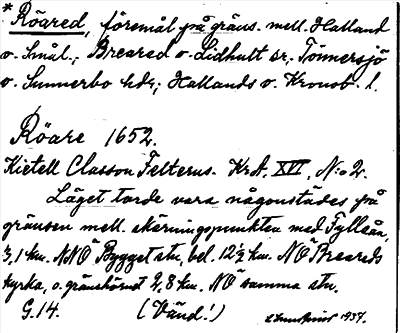 * Röared, föremål på gräns. mell. Halland
o. Smål.; Breared o. Lidhult sr; Tönnersjö
o. Sunnerbo hdr; Hallands o. Kronob. l.
Röare 1652.
Kietell Classon Felterus. KrA, XVI, N:o 2.
Läget torde vara någonstädes på
gränsen mell. skärningspunkten med Fylleån,
3,1 km. NNÖ Bygget stn, bel. 12½ km. NÖ Breareds
kyrka, o. gränshörnet 2,8 km. NÖ samma stn.
G. 14. (Vänd!) 1934.